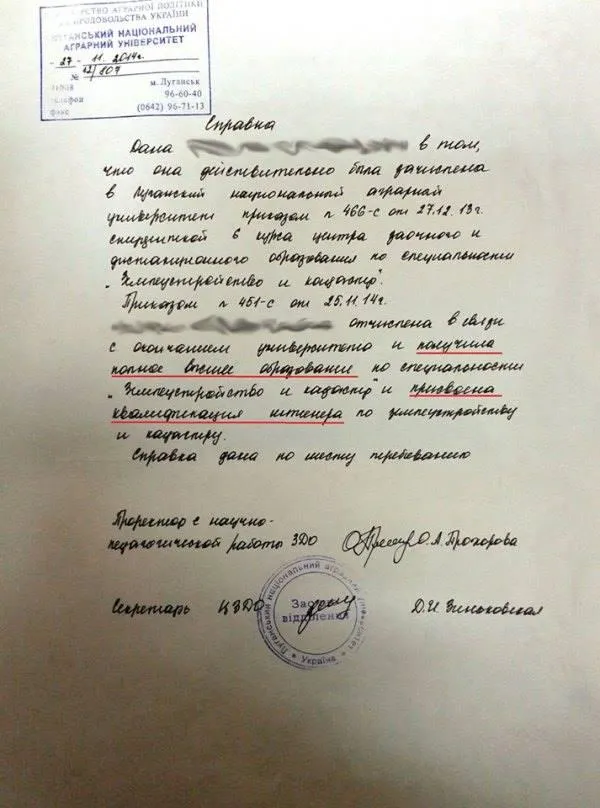 МІНІСТЕРСТВО АГРАРНОЇ ПОЛІТИКИ
ПРОДОВОЛЬСТВА УКРАЇНИ
ЛУГАНСЬКИЙ НАЦІОНАЛЬНИЙ
АГРАРНИЙ УНІВЕРСИТЕТ
- 27 - 11. 2014г.
№ 12/107
91008 м. Луганськ
телефон 96-60-40
факс (0642) 96-71-13
Справка
Дана в том,
что она действительно была зачислена
в Луганский национальный аграрный
университет приказом № 466-с от 27.12.13г.
студенткой 6 курса центра заочного и
дистанционного образования по специальности
"Землеустройство и кадастр".
Приказом № 451-с от 25.11.14г.
отчислена в связи
с окончанием университета и получила
полное высшее образование по специальности
"Землеустройство и кадастр" и присвоена
квалификация инженера по землеустройству
и кадастру.
Справка дана по месту требованию
Проректор с научно-
педагогической работы ЗДО О.А. Прохорова
Секретарь ЦЗДО Д.И. Зиньковская
Луганський національний аграрний університет
Заочне
відділення
* Україна *